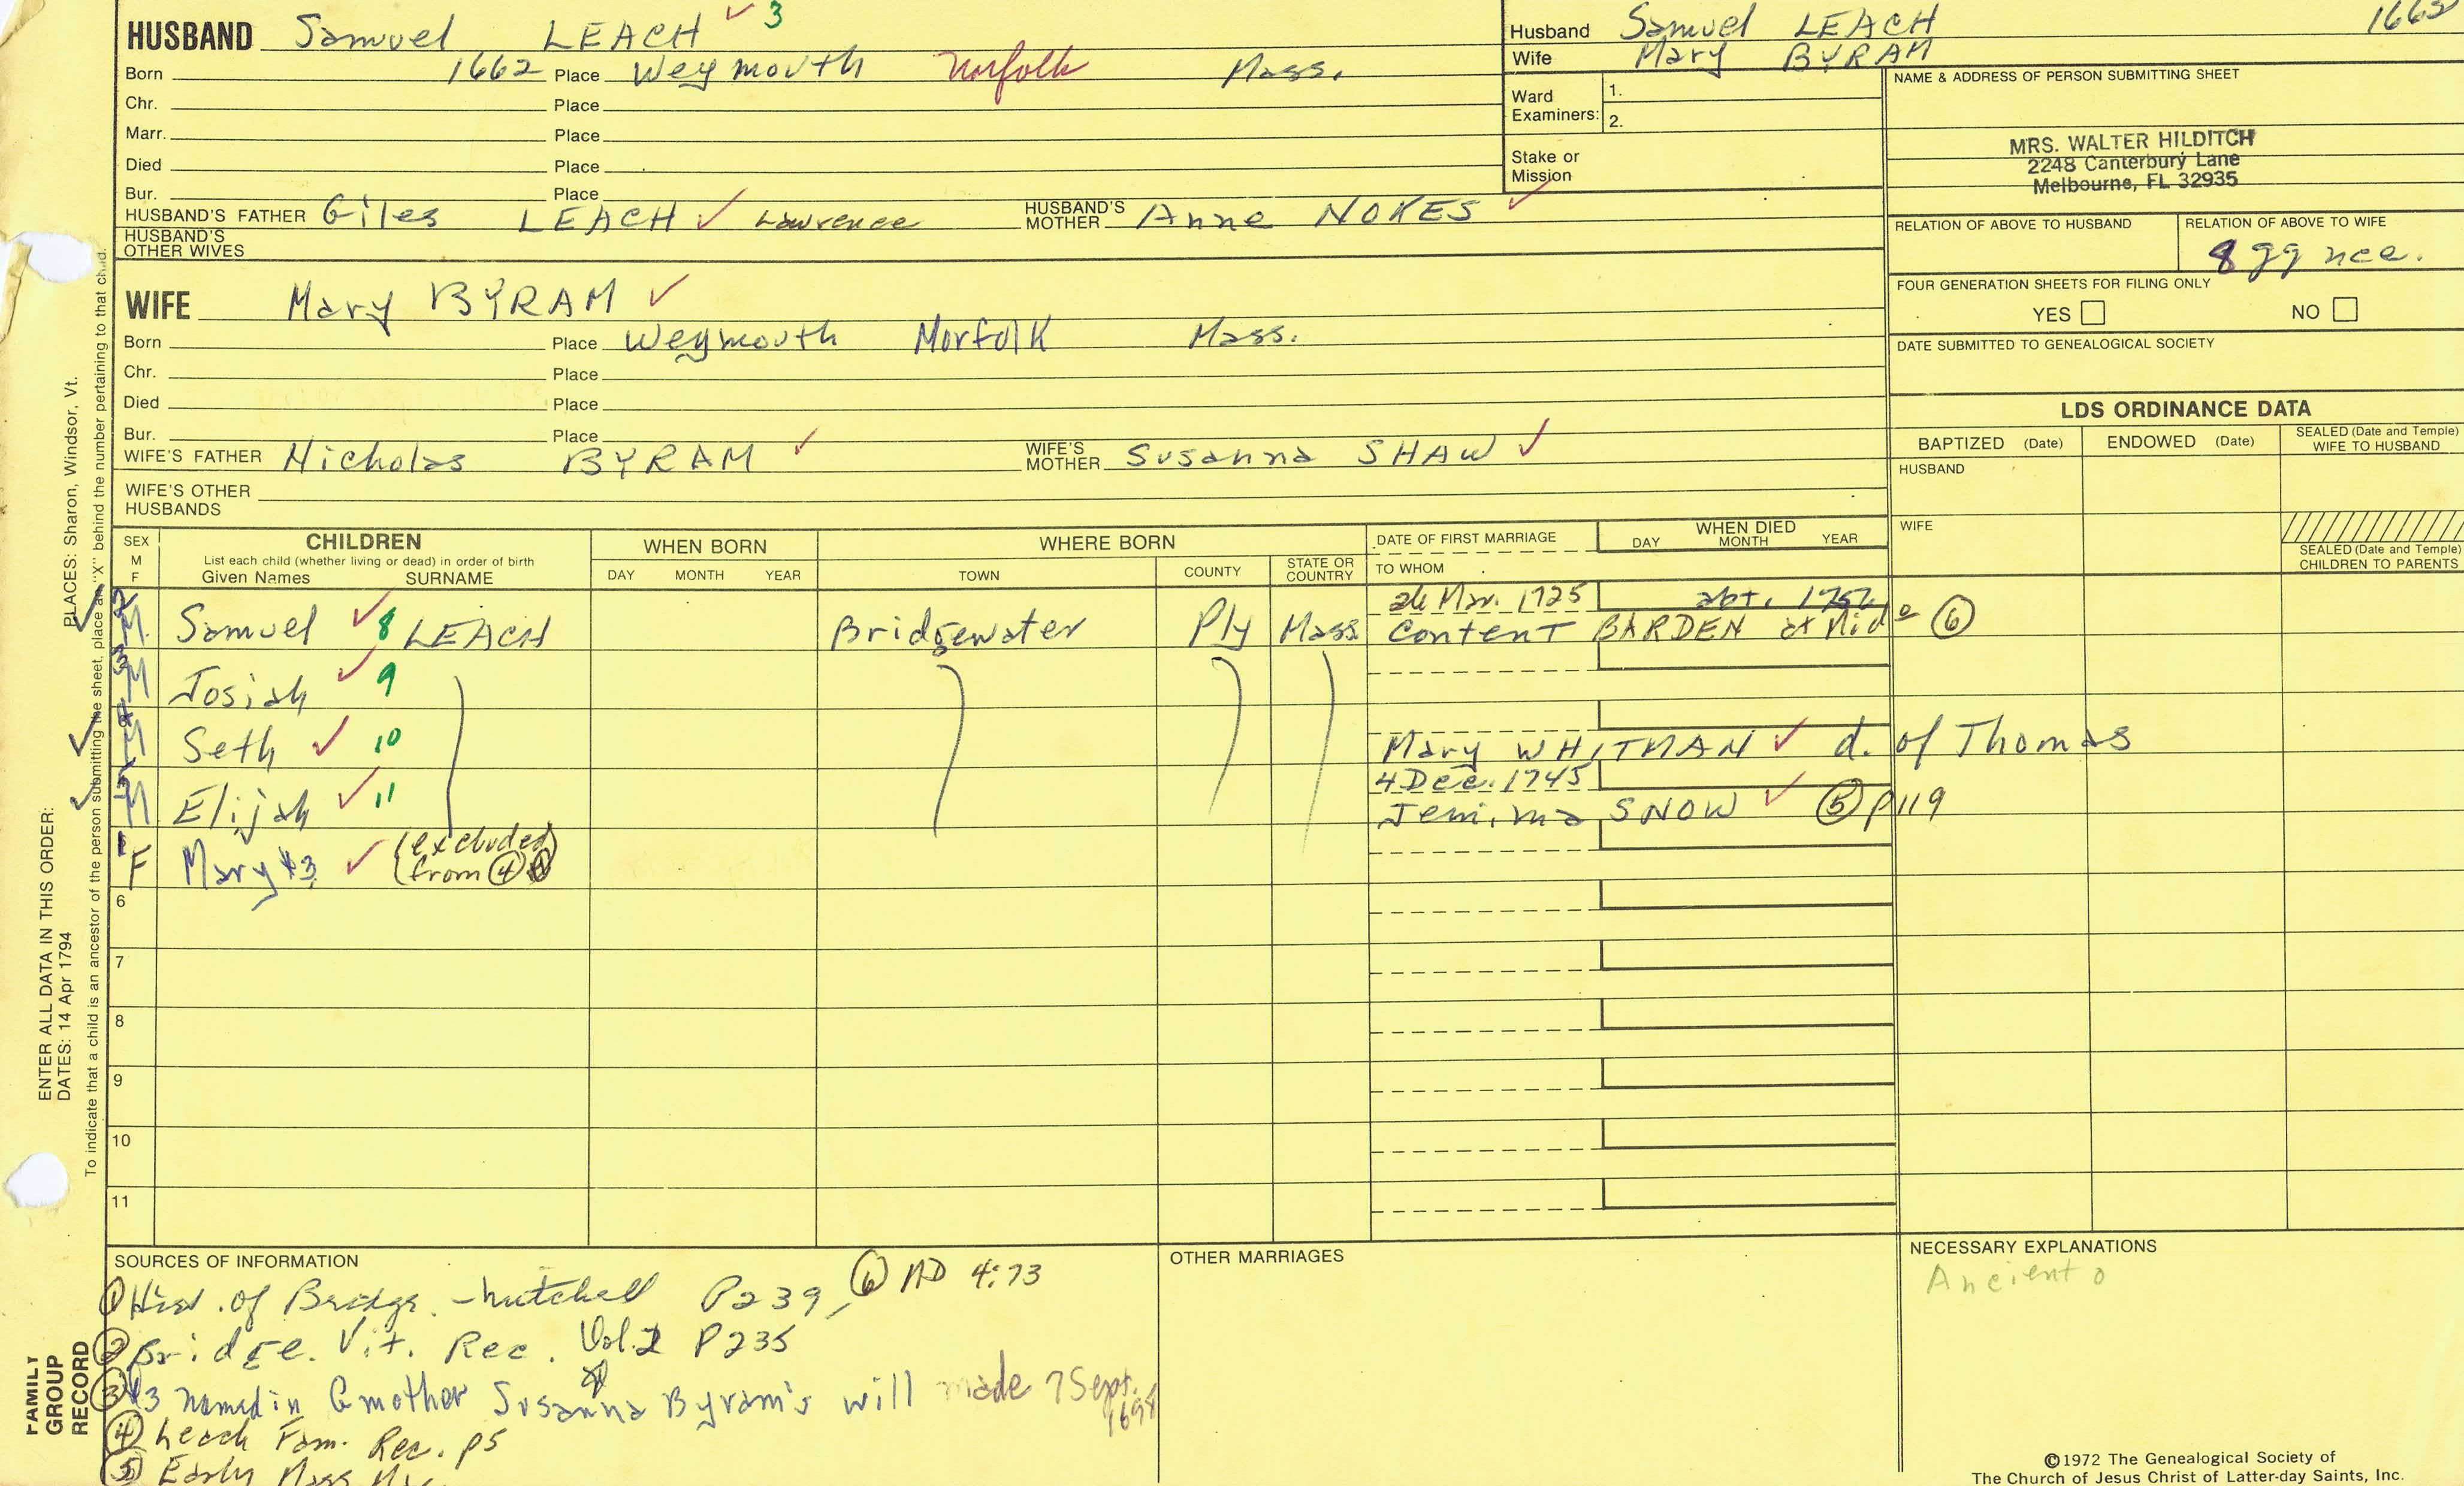 HUSBAND Samuel LEACH ✓ 3
Born 1662 Place Weymouth Norfolk Mass.
Chr. Place
Marr. Place
Died Place
Bur. Place
HUSBAND'S FATHER Giles LEACH ✓ Lawrence HUSBAND'S MOTHER Anne NOKES ✓
HUSBAND'S OTHER WIVES
Husband Samuel LEACH 1662
Wife Mary BYRAM
Ward Examiners: 1.
2.
Stake or Mission
NAME & ADDRESS OF PERSON SUBMITTING SHEET
MRS. WALTER HILDITCH
2248 Canterbury Lane
Melbourne, FL 32935
RELATION OF ABOVE TO HUSBAND RELATION OF ABOVE TO WIFE
8 gg nce.
FOUR GENERATION SHEETS FOR FILING ONLY
YES NO
DATE SUBMITTED TO GENEALOGICAL SOCIETY
WIFE Mary BYRAM ✓
Born Place Weymouth Norfolk Mass.
Chr. Place
Died Place
Bur. Place
WIFE'S FATHER Nicholas BYRAM ✓ WIFE'S MOTHER Susanna SHAW ✓
WIFE'S OTHER HUSBANDS
LDS ORDINANCE DATA
BAPTIZED (Date) ENDOWED (Date) SEALED (Date and Temple) WIFE TO HUSBAND
HUSBAND
WIFE
SEALED (Date and Temple) CHILDREN TO PARENTS
SEX M F
CHILDREN
List each child (whether living or dead) in order of birth
Given Names SURNAME
WHEN BORN
DAY MONTH YEAR
WHERE BORN
TOWN COUNTY STATE OR COUNTRY
DATE OF FIRST MARRIAGE
TO WHOM
WHEN DIED
DAY MONTH YEAR
26 Mar. 1725 abt. 1752
2 M Samuel ✓ 8 LEACH Bridgewater Ply Mass Content BARDEN at Mid ⑥
3 M Josiah ✓ 9
4 M Seth ✓ 10 Mary WHITMAN ✓ d. of Thomas
4 Dec. 1745
5 M Elijah ✓ 11 Jemima SNOW ✓ ⑤ p119
1 F Mary #3 ✓ (excluded from ④
6
7
8
9
10
11
SOURCES OF INFORMATION
① Hist. of Bridge. - Mitchell P239, ⑥ AD 4:73
② Bridge. Vit. Rec. Vol. 2 P235
③ #3 named in Gmother Susanna Byram's will made 7 Sept. 1698
④ Leach Fam. Rec. p5
⑤ Early Mass
OTHER MARRIAGES
NECESSARY EXPLANATIONS
Ancient
©1972 The Genealogical Society of
The Church of Jesus Christ of Latter-day Saints, Inc.
PLACES: Sharon, Windsor, Vt.
ENTER ALL DATA IN THIS ORDER:
DATES: 14 Apr 1794
To indicate that a child is an ancestor of the person submitting the sheet, place an "X" behind the number pertaining to that child.
FAMILY
GROUP
RECORD